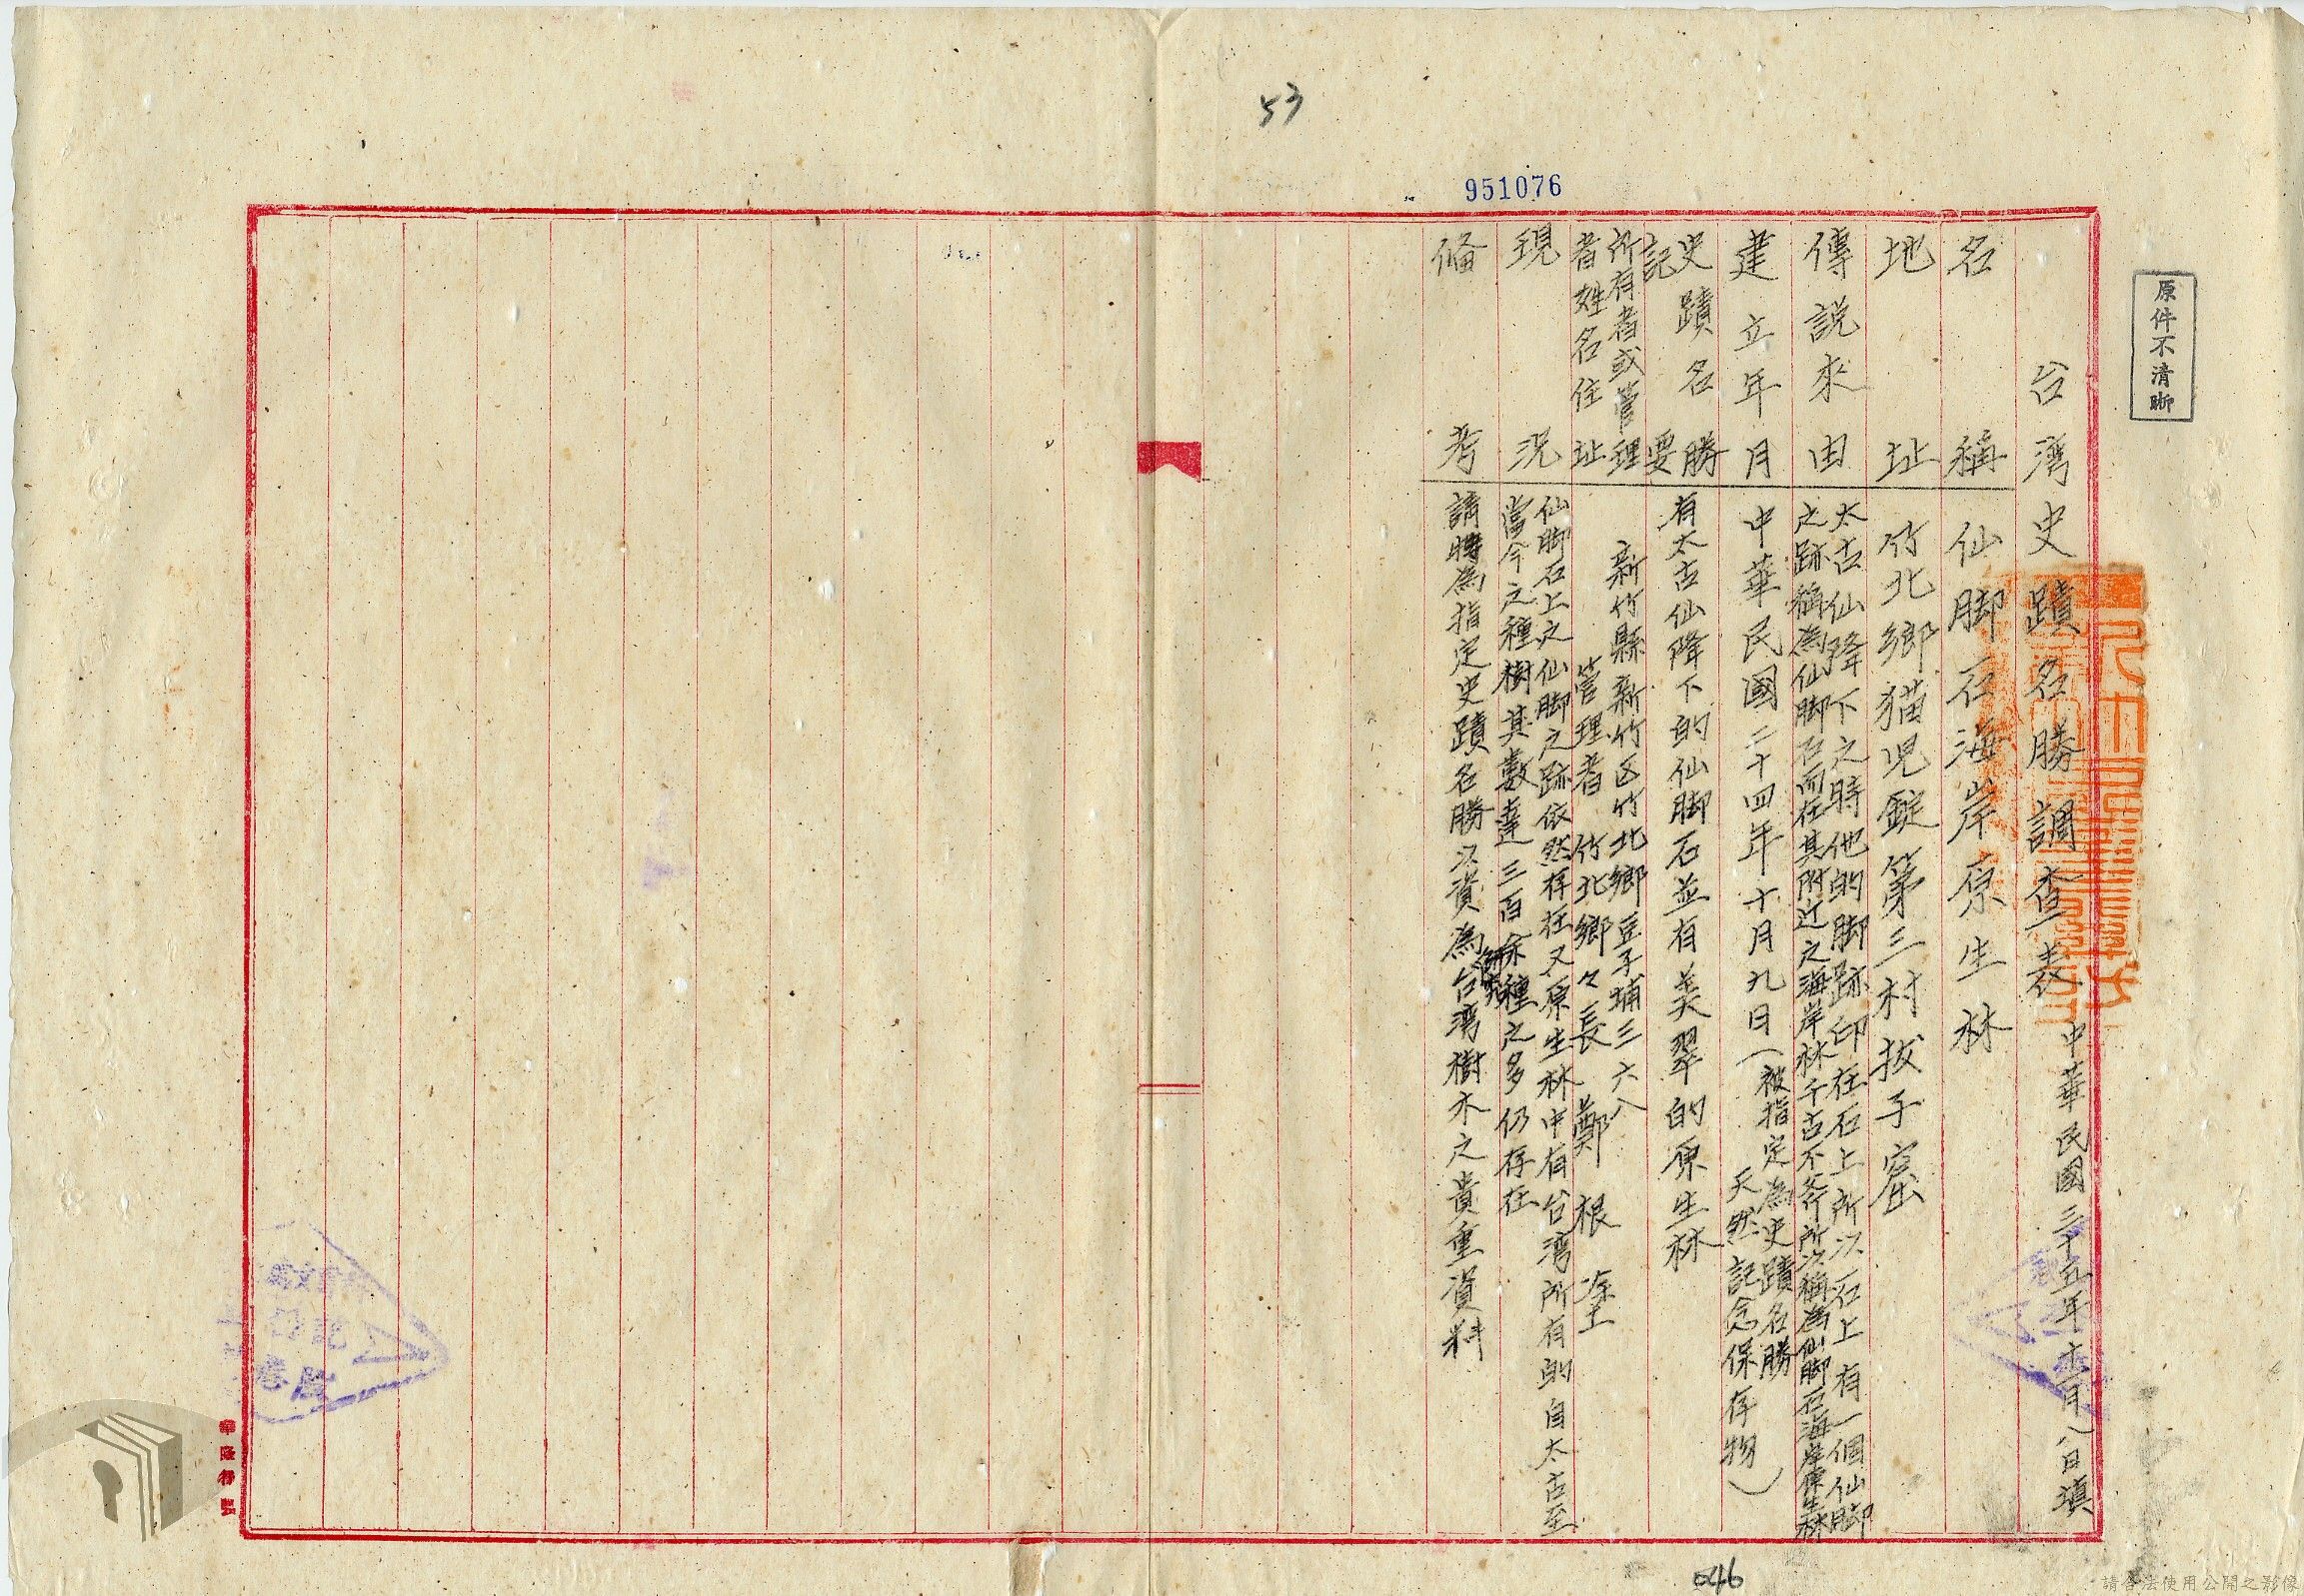 53
951076
原件不清晰
台湾史蹟名勝調查表 中華民國三十五年十一月八日填
名稱 仙脚石海岸原生林
地址 竹北鄉猫児錠第三村拔子窟
傳説來由 太古仙降下之時他的脚跡印在石上所以石上有一個仙脚
之跡稱為仙脚石而在其附近之海岸林千古不斧所以稱為仙脚石海岸原生林
建立年月 中華民國二十四年十月九日(被指定為史蹟名勝
天然記念保存物)
史蹟名勝
記要 有太古仙降下的仙脚石並有美翠的原生林
所有者或管理
者姓名住址 新竹縣新竹区竹北鄉豆子埔三六八
管理者 竹北鄉々長 鄭根塗
現況 仙脚石上之仙脚之跡依然存在又原生林中有台湾所有的自太古至
當今之種樹其數達三百餘種之多仍存在
備考 請將為指定史蹟名勝以資為台湾樹木之貴重資料
046
請合法使用公開之影像